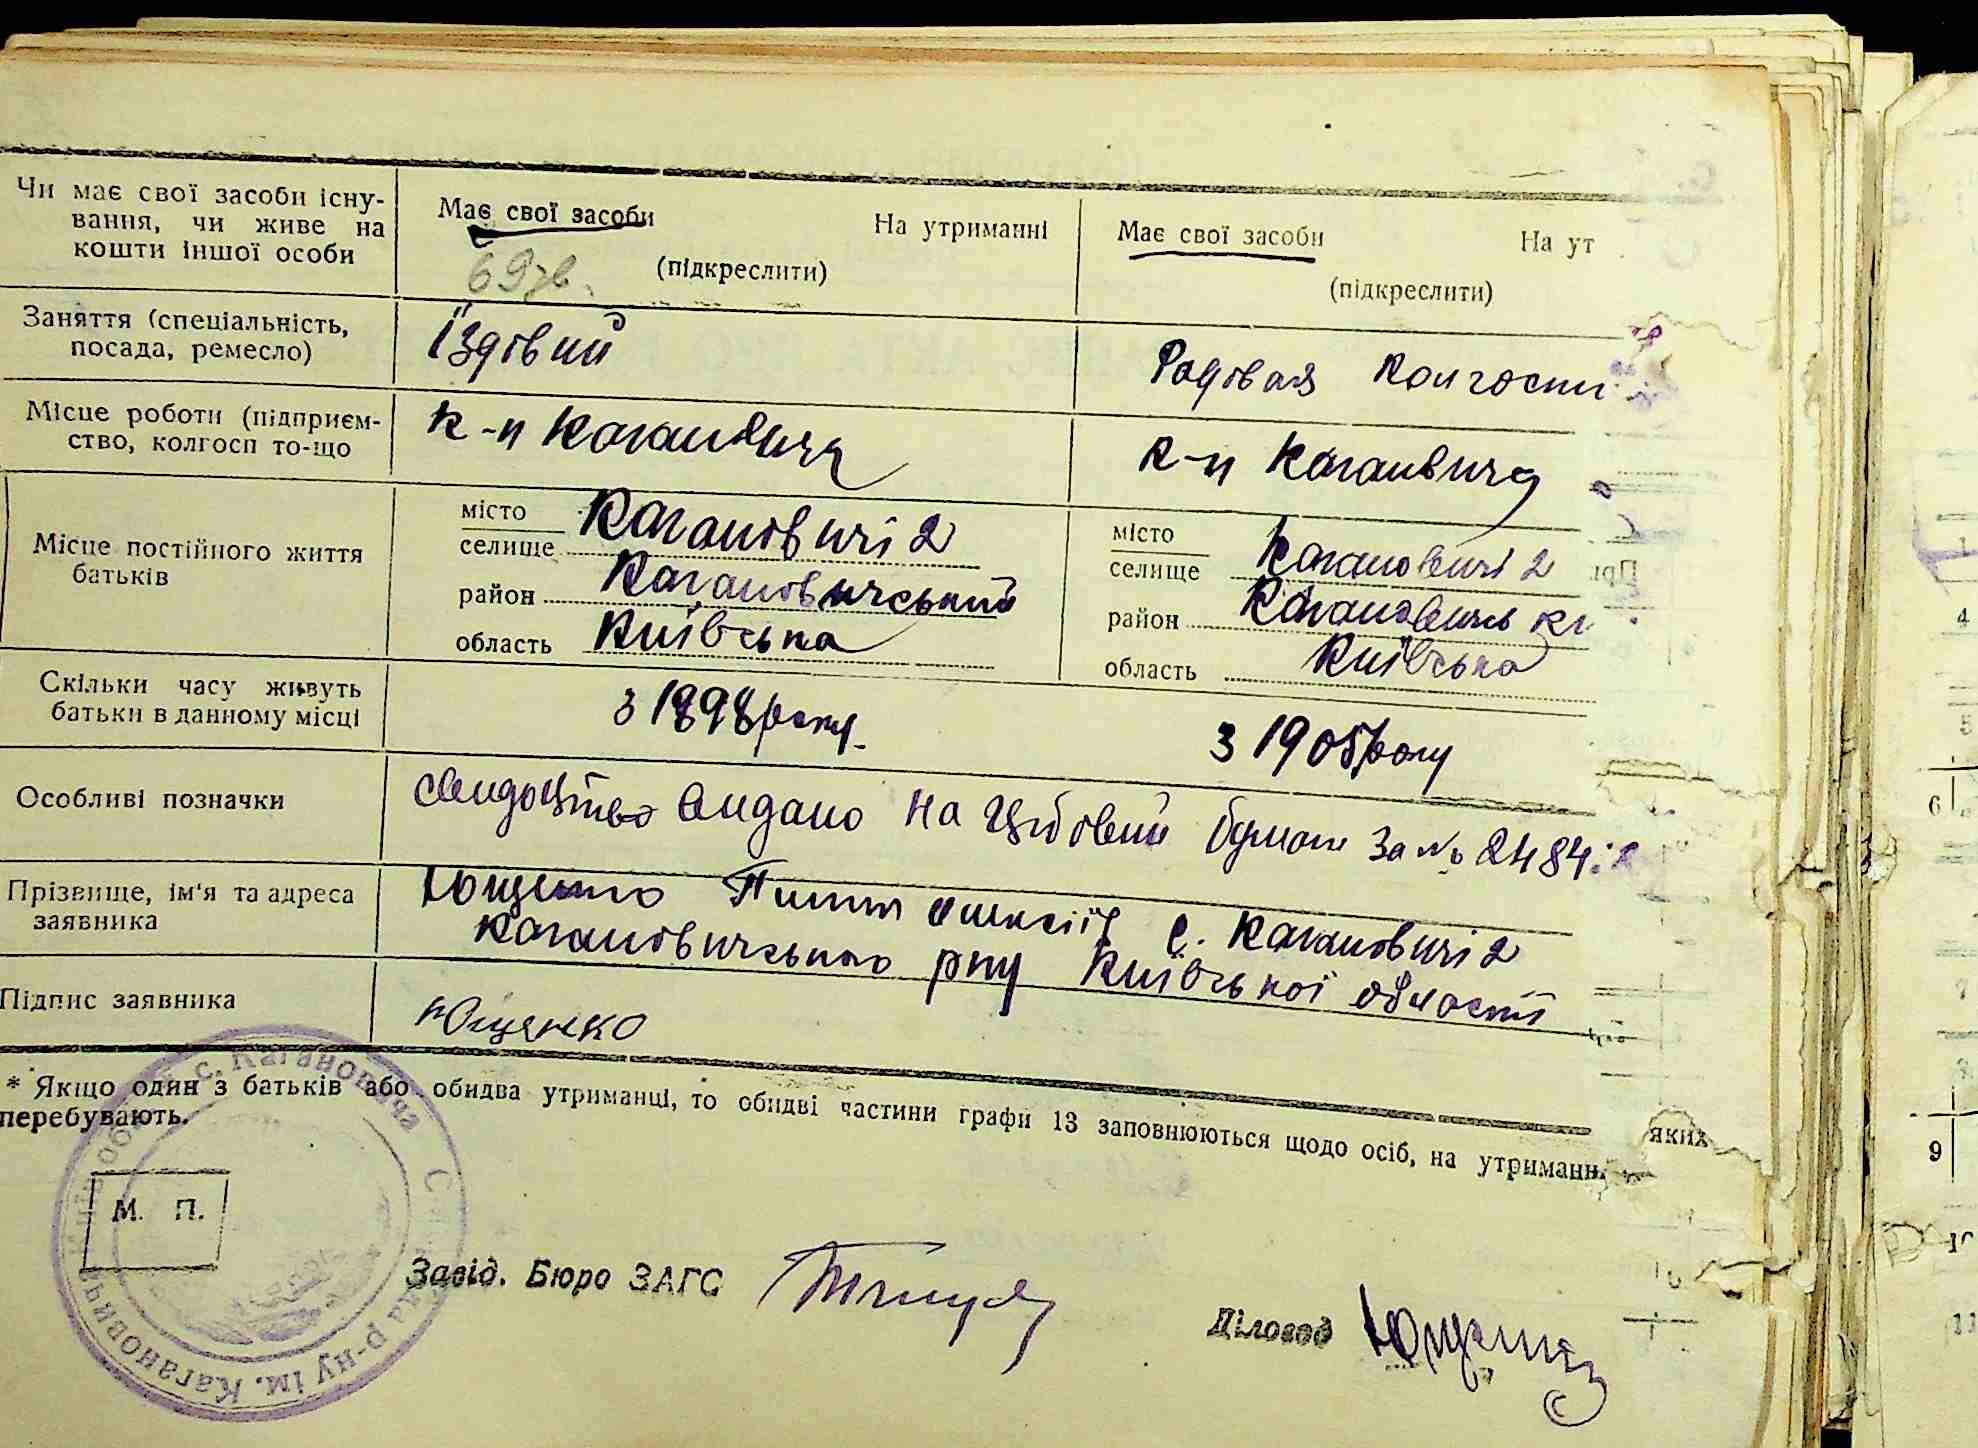 Чи має свої засоби існу-
вання, чи живе на
кошти іншої особи
Має свої засоби На утриманні
(підкреслити)
Має свої засоби На ут
(підкреслити)
Заняття (спеціальність,
посада, ремесло)
Їздовий
Рядовая колгосп
Місце роботи (підприєм-
ство, колгосп то-що
к-п Кагановича
к-п Кагановича
Місце постійного життя
батьків
місто
селище Кагановичі 2
район Кагановичський
область Київська
місто
селище Кагановичі 2
район Кагановичськ
область Київська
Скільки часу живуть
батьки в данному місці
з 1898 року
з 1905 року
Особливі позначки
свидоцтво видано на цвітовий бумаги за № 2484
Прізвище, ім'я та адреса
заявника
Ющенко Пилип с. Кагановичі 2
Кагановичського р-ну Київської області
Підпис заявника
Ющенко
* Якщо один з батьків або обидва утриманці, то обидві частини графи 13 заповнюються щодо осіб, на утриманн яких
перебувають.
М. П.
с. Кагановича
р-ну ім. Кагановича
Завід. Бюро ЗАГС
Діловод Ющенко
4
5
6
7
9
10
11